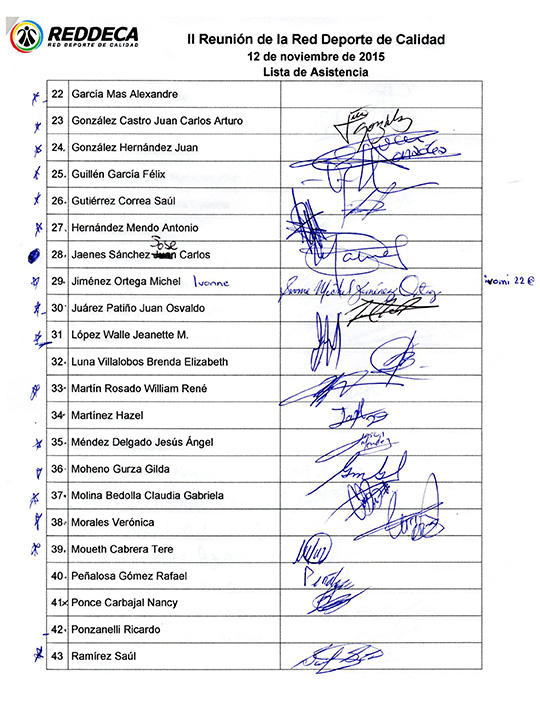 REDDECA
RED DEPORTE DE CALIDAD
II Reunión de la Red Deporte de Calidad
12 de noviembre de 2015
Lista de Asistencia
22 García Mas Alexandre
23 González Castro Juan Carlos Arturo
24. González Hernández Juan
25. Guillén García Félix
26. Gutiérrez Correa Saúl
27. Hernández Mendo Antonio
Jose
28. Jaenes Sánchez Juan Carlos
29. Jiménez Ortega Michel Ivonne Ivonne Michel Jiménez Ortega ivomi 22@
30. Juárez Patiño Juan Osvaldo
31 López Walle Jeanette M.
32. Luna Villalobos Brenda Elizabeth
33. Martín Rosado William René
34. Martínez Hazel
35. Méndez Delgado Jesús Ángel
36. Moheno Gurza Gilda
37. Molina Bedolla Claudia Gabriela
38. Morales Verónica
39. Moueth Cabrera Tere
40. Peñalosa Gómez Rafael
41 Ponce Carbajal Nancy
42. Ponzanelli Ricardo
43 Ramírez Saúl